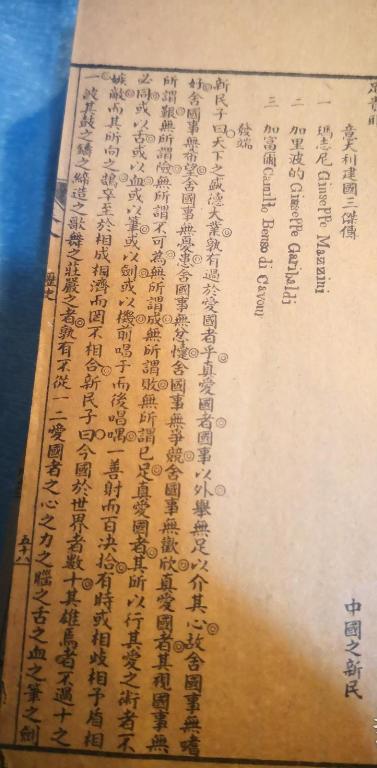 意大利建國三傑傳
中國之新民
一 瑪志尼 Giuseppe Mazzini
二 加里波的 Giuseppe Garibaldi
三 加富爾 Camillo Benso di Cavour
發端
新民子曰天下之盛德大業孰有過於愛國者乎真愛國者國事以外舉無足以介其心故舍國事無嗜
好舍國事無希望舍國事無憂患舍國事無忿懥舍國事無爭競舍國事無歡欣真愛國者其視國事無
所謂艱無所謂險無所謂不可為無所謂成無所謂敗無所謂已足真愛國者其所以行其愛之術者不
必同或以舌或以血或以筆或以劍或以機前唱于而後唱喁一善射而百決拾有時或相歧相矛盾相
嫉敵而其所向之鵠卒至於相成相濟而罔不相合新民子曰今國於世界者數十其雄焉者不過十之
一彼其鼓之鑄之締造之歌舞之莊嚴之者孰有不從一二愛國者之心之力之腦之舌之血之筆之劍
歷史
五十八